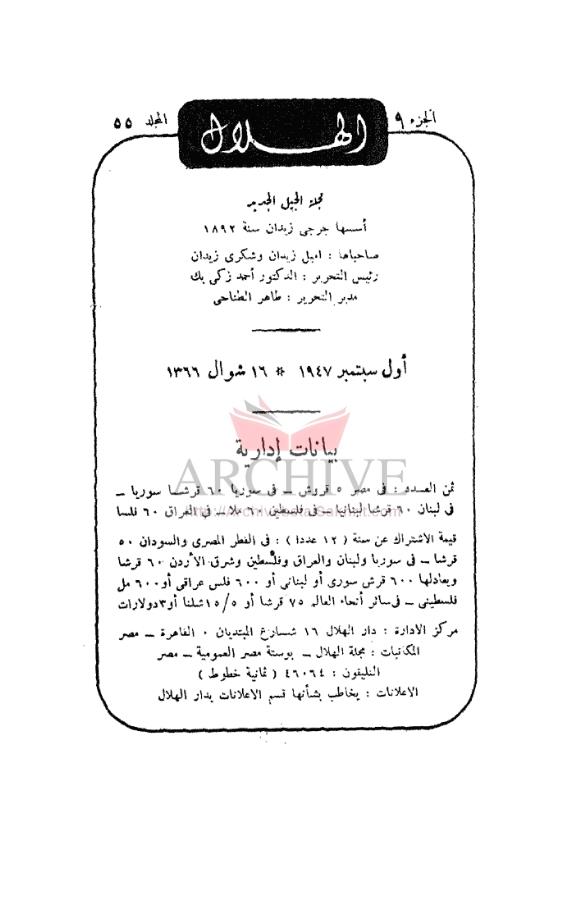 الجزء ٩
الهلال
المجلد ٥٥
مجلة الجيل الجديد
أسسها جرجى زيدان سنة ١٨٩٢
صاحباها : اميل زيدان وشكرى زيدان
رئيس التحرير : الدكتور أحمد زكى بك
مدير التحرير : طاهر الطناحى
أول سبتمبر ١٩٤٧ * ١٦ شوال ١٣٦٦
بيانات إدارية
ARCHIVE
ثمن العدد : فى مصر ٥ قروش ــ فى سوريا ٦٠ قرشا سوريا ــ
فى لبنان ٦٠ قرشا لبنانيا ــ فى فلسطين ٦٠ ملا ــ فى العراق ٦٠ فلسا
قيمة الاشتراك عن سنة ( ١٢ عددا ) : فى القطر المصرى والسودان ٥٠
قرشا ــ فى سوريا ولبنان والعراق وفلسطين وشرق الأردن ٦٠ قرشا
ويعادلها ٦٠٠ قرش سورى أو لبنانى أو ٦٠٠ فلس عراقى أو ٦٠٠ مل
فلسطينى ــ فى سائر أنحاء العالم ٧٥ قرشا أو ١٥/٥ شلنا أو ٣ دولارات
مركز الادارة : دار الهلال ١٦ شارع المبتديان ٠ القاهرة ــ مصر
المكاتبات : مجلة الهلال ــ بوستة مصر العمومية ــ مصر
التليفون : ٤٦٠٦٤ ( ثمانية خطوط )
الاعلانات : يخاطب بشأنها قسم الاعلانات بدار الهلال